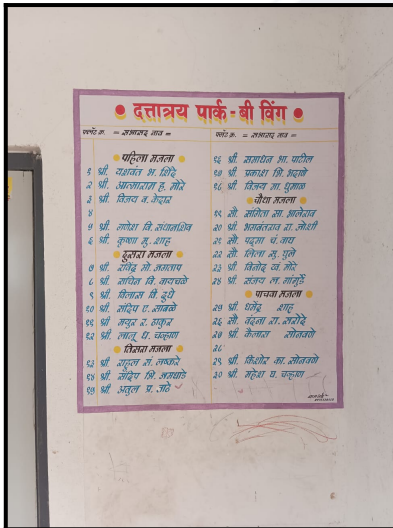 दत्तात्रय पार्क - बी विंग
फ्लॅट क्र. = सभासद नाव =
पहिला मजला
१ श्री. यशवंत भ. शिंदे
२ श्री. आत्माराम ह. मोरे
३ श्री. विजय व. केदार
४
५ श्री. गणेश वि. संधानशिव
६ श्री. कृष्णा मु. शाह
दुसरा मजला
७ श्री. रविंद्र मो. जगताप
८ श्री. सचिन वि. कायचळे
९ श्री. विलास वि. दुधे
१० श्री. संदिप ए. साबळे
११ श्री. मयुर र. ठाकुर
१२ श्री. लालू ध. चव्हाण
तिसरा मजला
१३ श्री. राहुल स. लष्करे
१४ श्री. संदिप शि. जगधाडे
१५ श्री. अतुल प्र. राठे
फ्लॅट क्र. = सभासद नाव =
१६ श्री. समाधन भा. पाटील
१७ श्री. प्रकाश भि. भदाणे
१८ श्री. विजय मा. धुमाळ
चौथा मजला
१९ सौ. संगिता सा. भालेराव
२० श्री. भगवंतराव रा. जोशी
२१ सौ. पद्मा चं. वाघ
२२ सौ. लिला सु. पुले
२३ श्री. विनोद ज्ञ. मोरे
२४ श्री. संजय ल. गांगुर्डे
पाचवा मजला
२५ श्री. धर्मेंद्र शाह
२६ सौ. वंदना रा. सरोदे
२७ श्री. कैलास सोनवणे
२८
२९ श्री. किशोर का. सोनवणे
३० श्री. महेश ध. चव्हाण